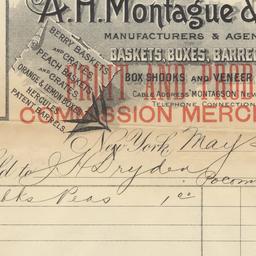 A.H. Montague &
MANUFACTURERS & AGEN
BASKETS, BOXES, BARRE
BOX SHOOKS AND VENEER
CABLE ADDRESS MONTAGSON, NEW
TELEPHONE CONNECTION
BERRY BASKETS
AND CRATES
PEACH BASKETS
AND CRATES
ORANGE & LEMON BOXES
HERCULES
PATENT BARRELS
FRUIT AND PRODUCE
COMMISSION MERCH
New York, May
ld to J H Dryden Pocom
bbls Peas 1 00